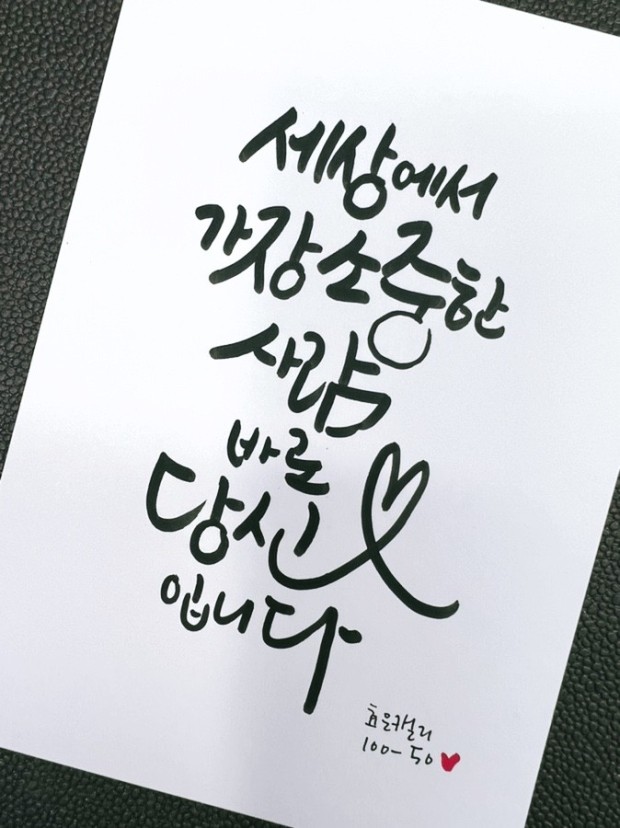 세상에서
가장 소중한
사람
바로
당신
입니다
효은캘리
100-50